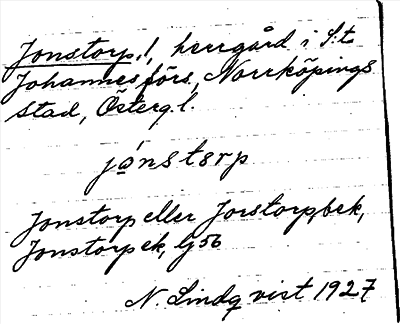 Jonstorp, l, herrgård i S:t
Johannes förs, Norrköpings
stad, Österg. l.
jonstorp
Jonstorp eller Jorstorp, bek,
Jonstorp ek, lj 56
N. Lindqvist 1927